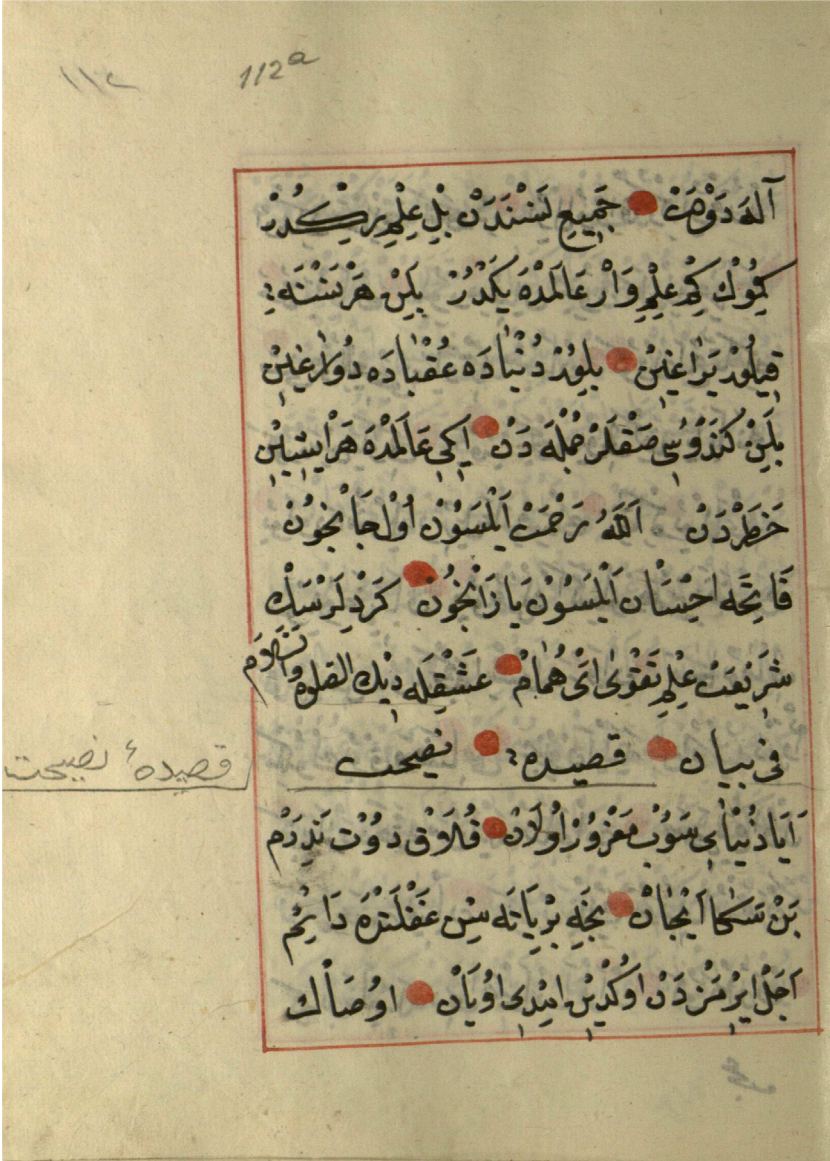 ١١٢
112a
آله دَوْمَتْ جَمِيعِ نَسْنَدَنْ بِلِ عِلْمِ يَرَكْدُرْ
كِمُوكْ كِمْ عِلْمِ وَارْ عَالَمْدَه يَكْدُرْ بِلَنْ هَرْ نَسْنَه
قِيلُورْ يَرَاغِينْ بِلُورْ دُنْيَادَه عُقْبَادَه دُورَاغِينْ
بِلَنْ كَنْدُوسِي صَقْلَرْ جُمْلَه دَنْ اَيكِي عَالَمْدَه هَرْ اِيشِينْ
خَطَرْدَنْ اَللّٰهُ رَحْمَتْ اَيْلَسُونْ اُولْ جَانْجُونْ
فَاتِحَه اِحْسَانْ اَيْلَسُونْ يَازَانْجُونْ كَرْدِلَرْسَكْ
شَرِيعَتْ عِلْمِ تَقْوٰى اتَى هُمَامْ عَشْقِلَه دِيكْ الصلوة وَالسَّلَامْ
فى بيان قصيده نصيحت
قصيدهٔ نصيحت
اَيَا دُنْيَايِ سَوُبْ مَغْرُورْ اُولَانْ قُلَاقْ دُوتْ نَدِرَمْ
بَنْ سَكَا اَيْ جَانْ نِجَه بِرْ يَاتَه سِنْ غَفْلَتْدَه دَائِمْ
اَجَلْ اِيرْمَزْدَنْ اُوكْدِينْ اِيمْدِى اُويَانْ اُوصَانْ